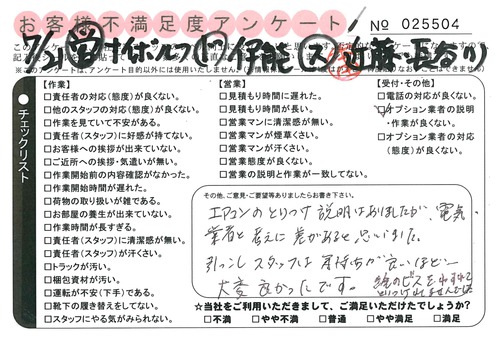 お客様不満足度アンケート
No 025504
チェックリスト
【作業】
□責任者の対応(態度)が良くない。
□他のスタッフの対応(態度)が良くない。
□作業を見ていて不安がある。
□責任者(スタッフ)に好感が持てない。
□お客様への挨拶が出来ていない。
□ご近所への挨拶・気遣いが無い。
□作業開始前の内容確認がなかった。
□作業開始時間が遅れた。
□荷物の取り扱いが雑である。
□お部屋の養生が出来ていない。
□作業時間が長すぎる。
□責任者(スタッフ)に清潔感が無い。
□責任者(スタッフ)が汗くさい。
□トラックが汚い。
□梱包資材が汚い。
□運転が不安(下手)である。
□靴下の履き替えをしてない。
□スタッフにやる気がみられない。
【営業】
□見積もり時間に遅れた。
□見積もり時間が長い。
□営業マンに清潔感が無い。
□営業マンが煙草くさい。
□営業マンが汗くさい。
□営業態度が良くない。
□営業の説明と作業が一致してない。
【受付・その他】
□電話の対応が良くない。
□オプション業者の説明
・作業が良くない。
□オプション業者の対応
(態度)が良くない。
その他、ご意見・ご要望等ありましたらお書き下さい。
エアコンのとりつけ説明はありましたが、電気
業者と考えに差があると思いました。
引っこしスタッフは気持ちが良いほど
大変良かったです。
☆当社をご利用いただきまして、ご満足いただけたでしょうか?
□不満 □やや不満 □普通 □やや満足 □満足